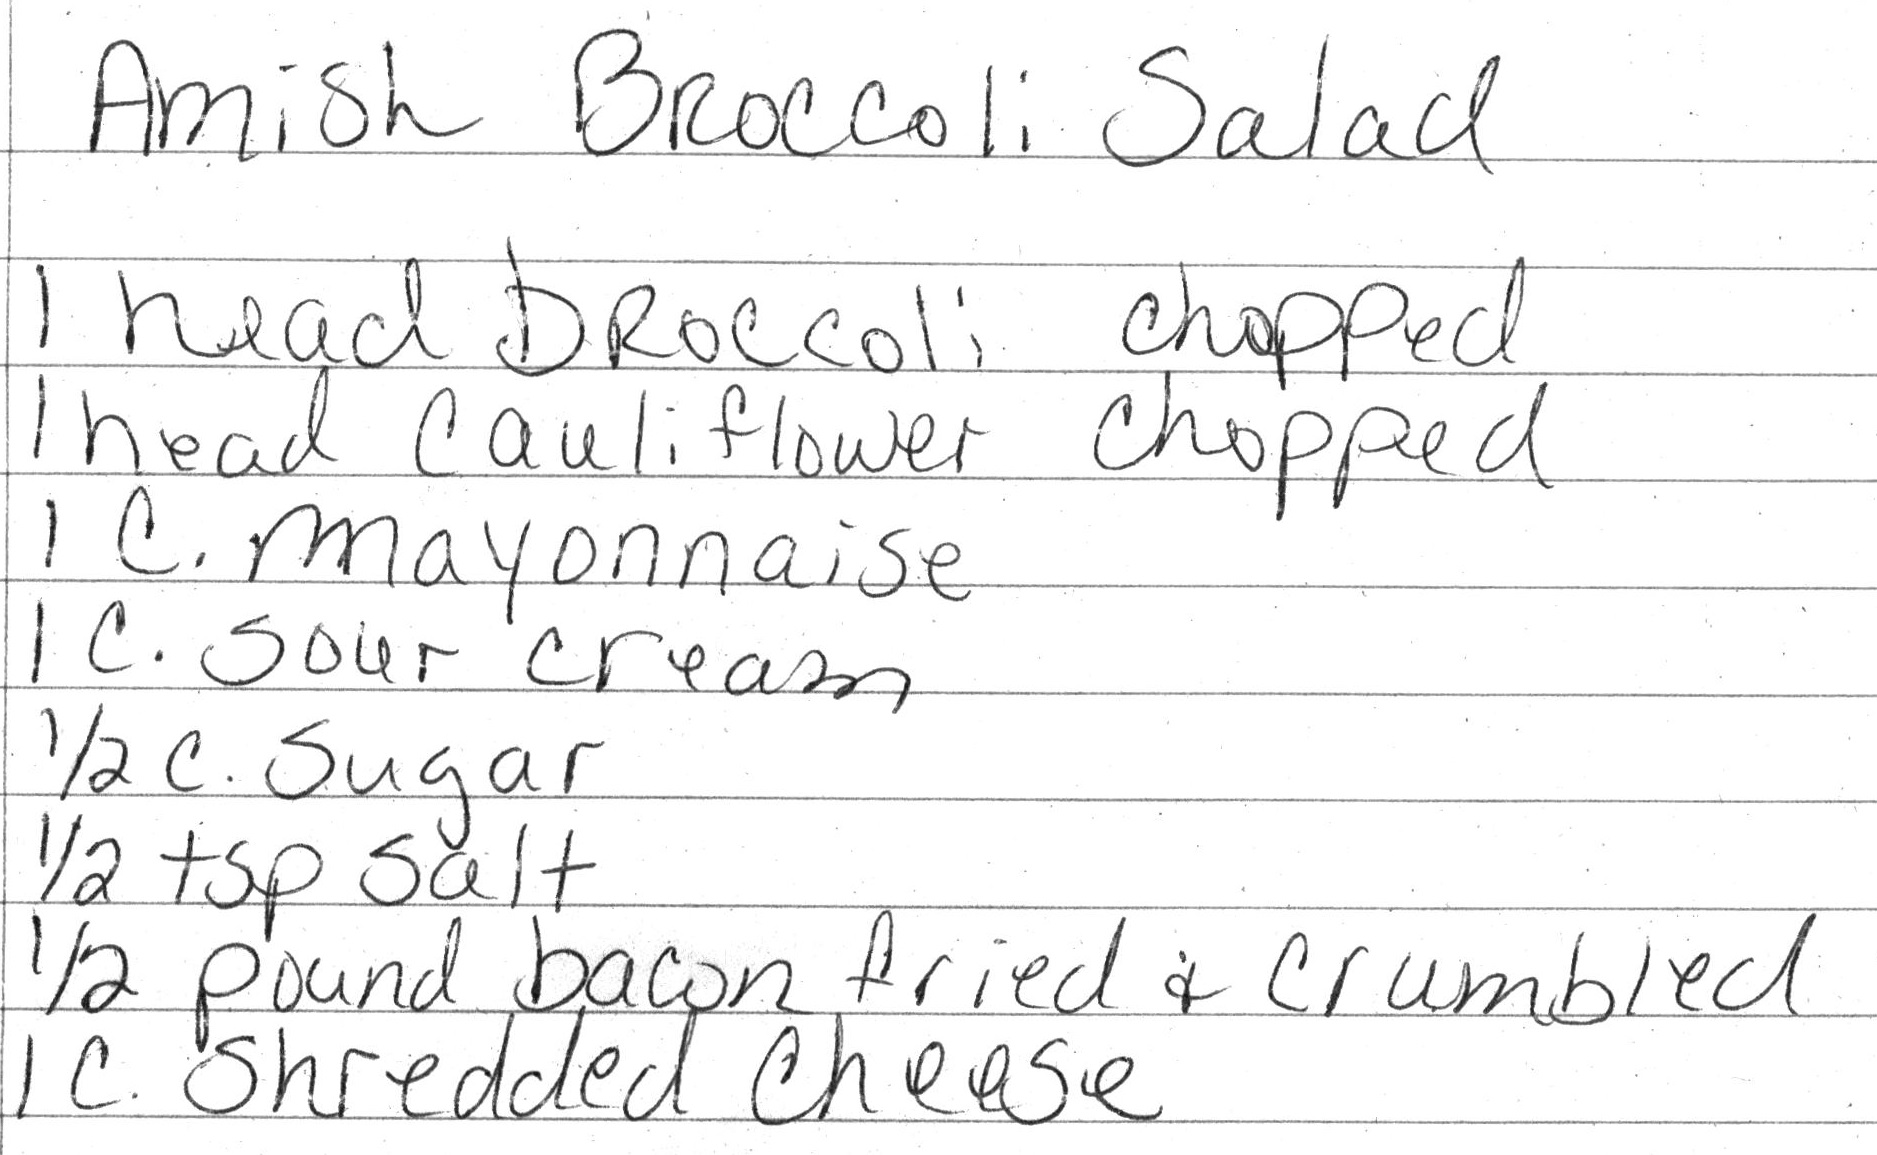 Amish Broccoli Salad
1 head broccoli chopped
1 head Cauliflower chopped
1 C. mayonnaise
1 C. Sour cream
1/2 C. Sugar
1/2 tsp salt
1/2 pound bacon fried & crumbled
1 C. Shredded Cheese